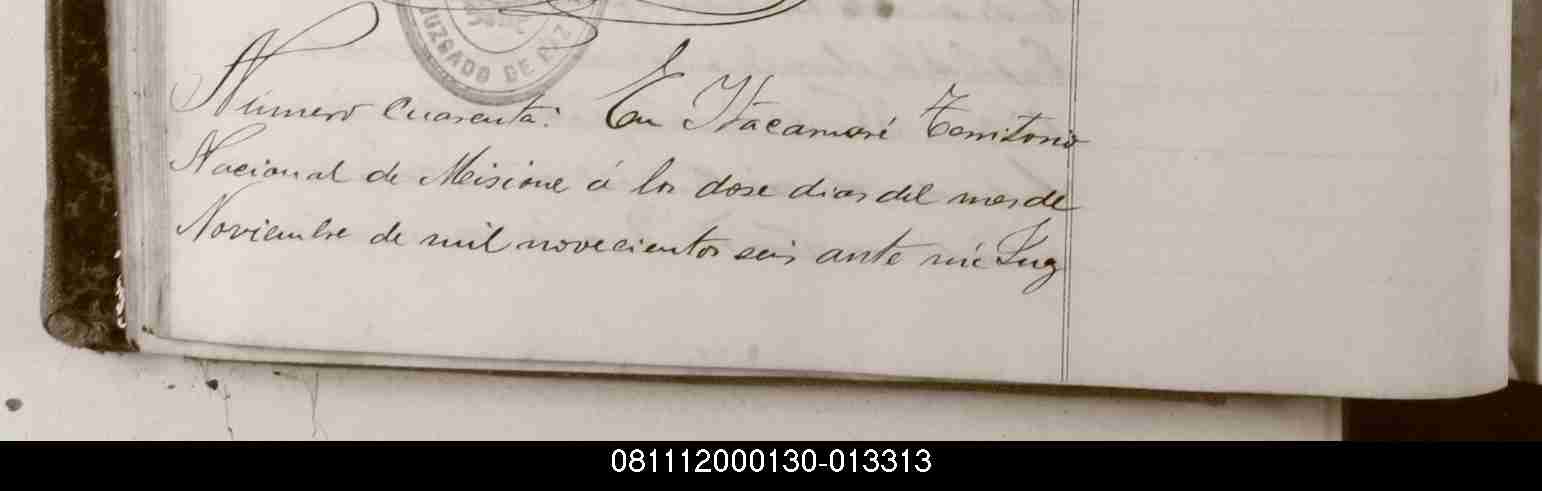 JUZGADO DE PAZ
Número cuarenta: En Itacaruaré Territorio
Nacional de Misione á los dose dias del mes de
Noviembre de mil novecientos seis ante mí Juez
081112000130-013313